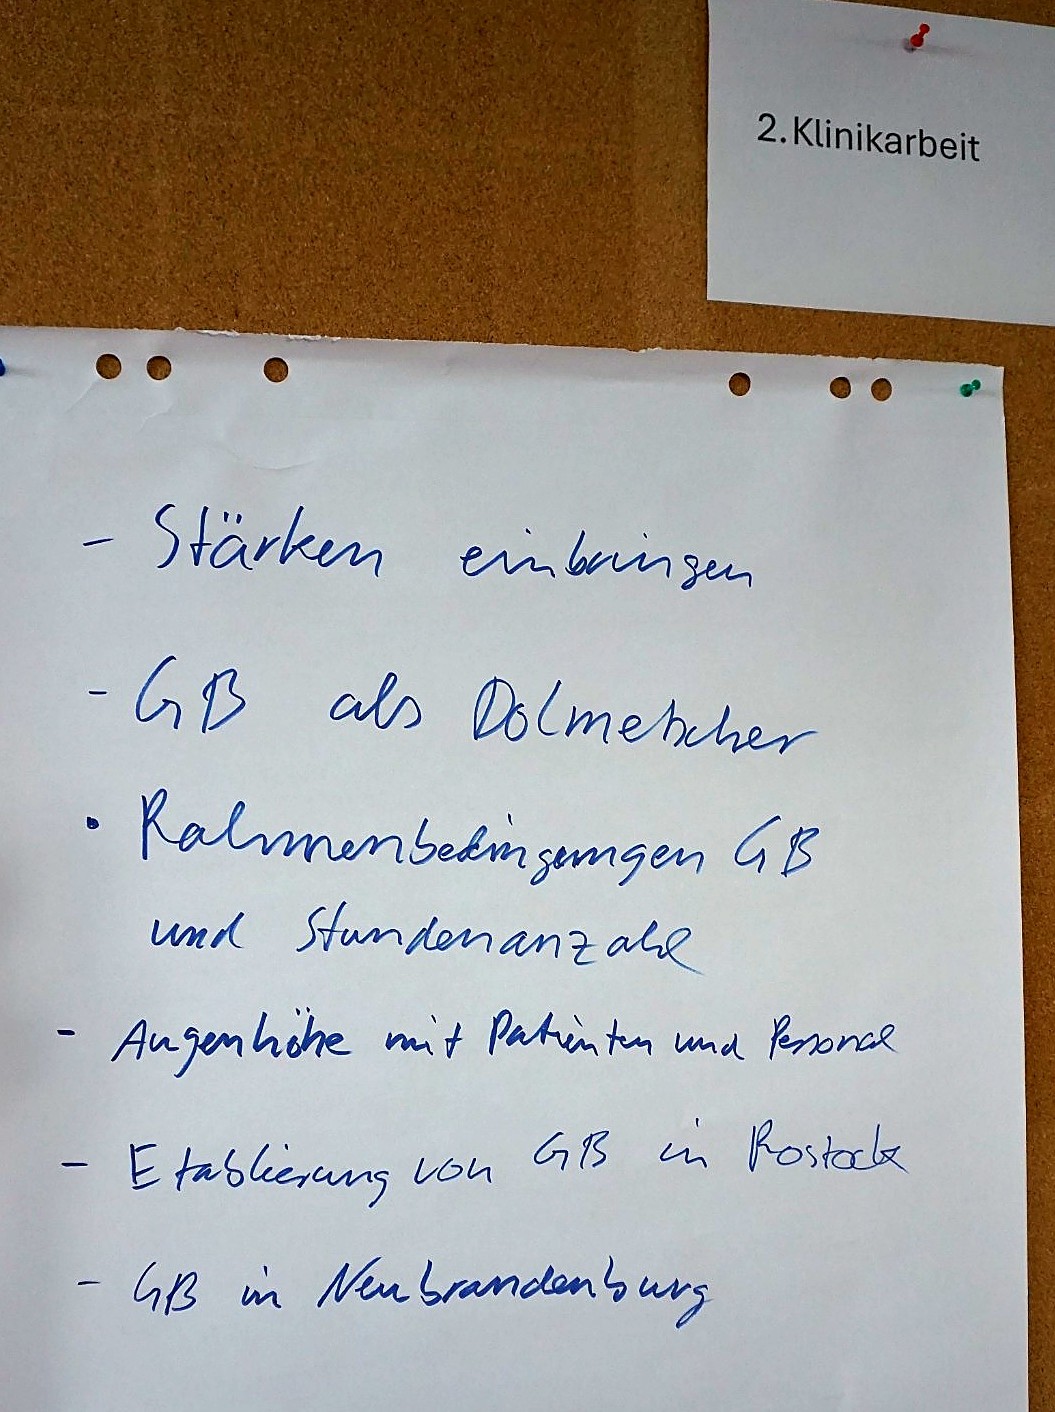 2. Klinikarbeit
- Stärken einbringen
- GB als Dolmetscher
• Rahmenbedingungen GB
und Stundenanzahl
- Augenhöhe mit Patienten und Personal
- Etablierung von GB in Rostock
- GB in Neubrandenburg